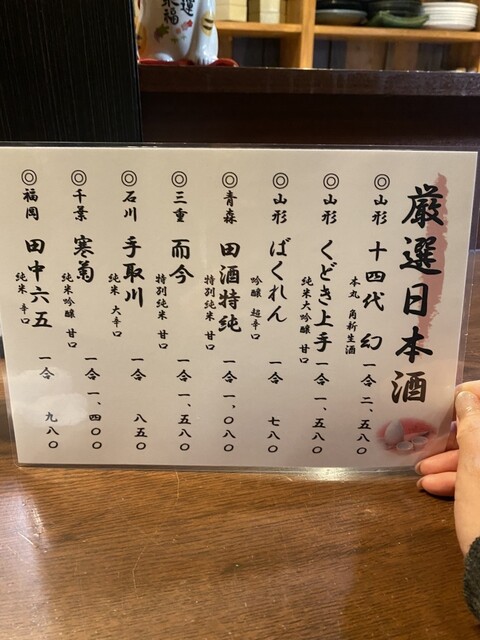 厳選日本酒
◎山形 十四代 幻 一合 二、五八〇
本丸 角新生酒
◎山形 くどき上手 一合 一、五八〇
純米大吟醸 甘口
◎山形 ばくれん 一合 七八〇
吟醸 超辛口
◎青森 田酒特純 一合 一、〇八〇
特別純米 甘口
◎三重 而今 一合 一、五八〇
特別純米 甘口
◎石川 手取川 一合 八五〇
純米 大辛口
◎千葉 寒菊 一合 一、四〇〇
純米吟醸 甘口
◎福岡 田中六五 一合 九八〇
純米 辛口
福